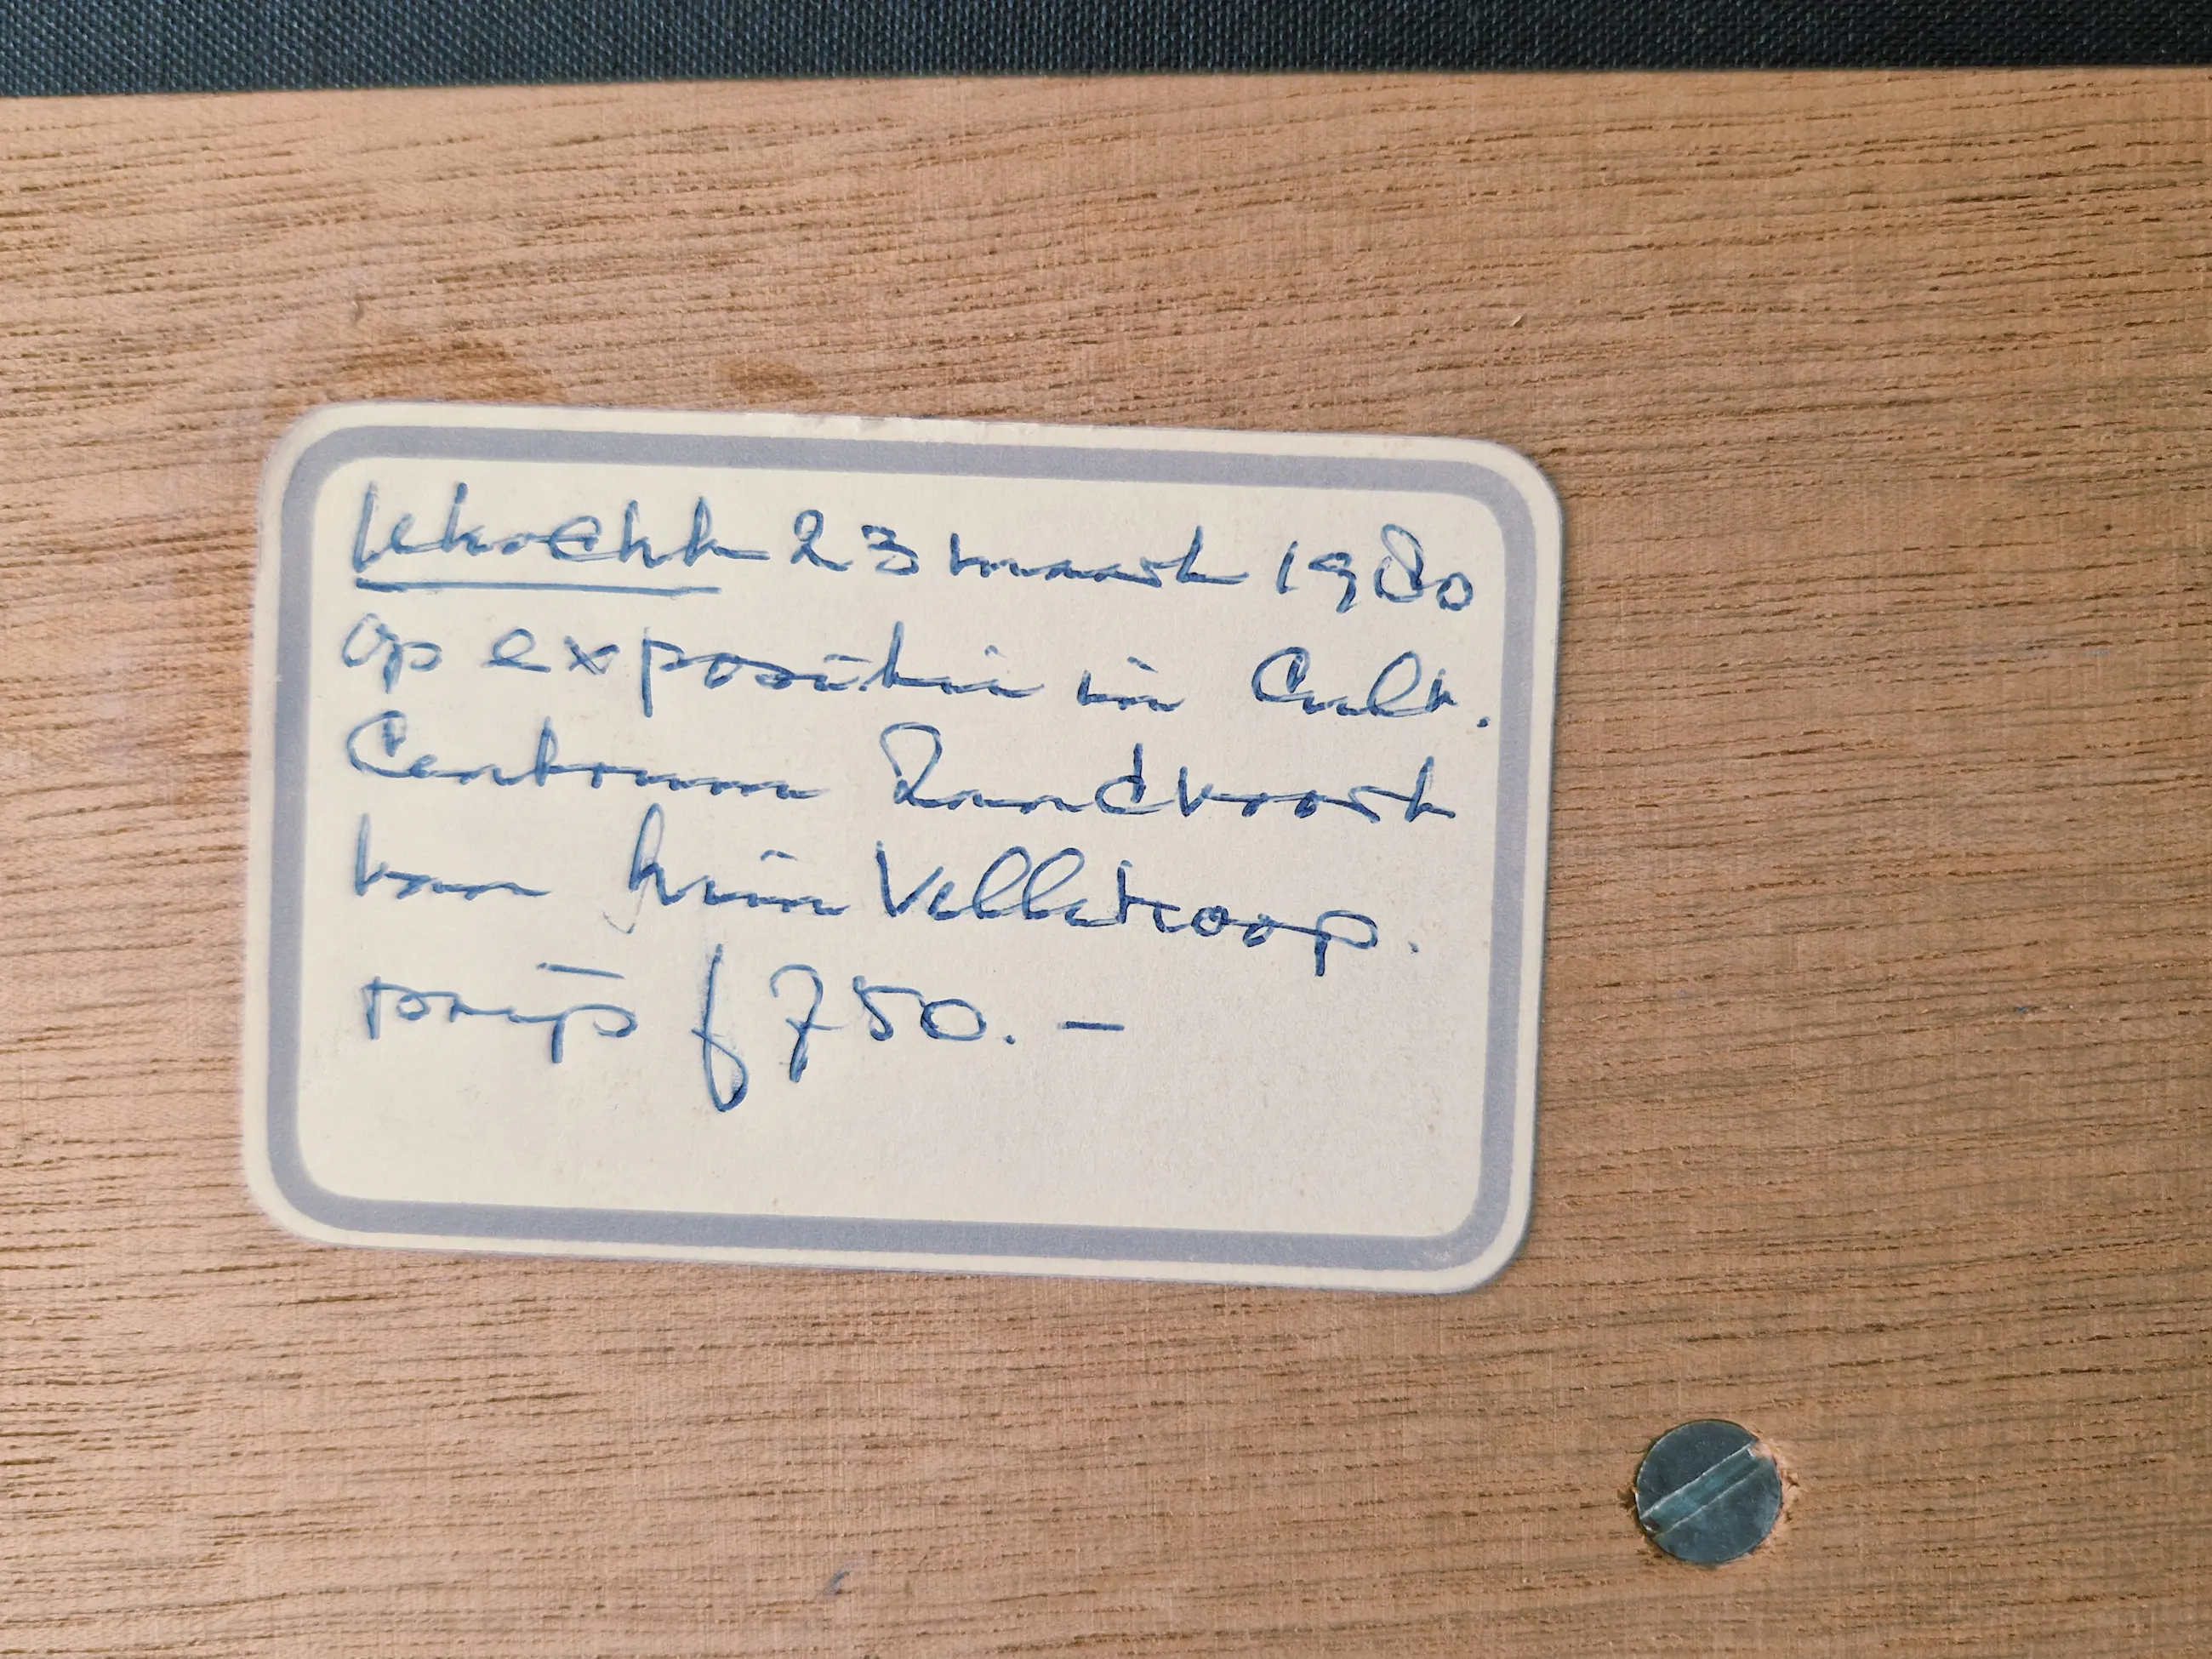 Verkocht 23 maart 1980
op expositie in Cult.
Centrum Zandvoort
van hein Vellekoop.
prijs f 750.-